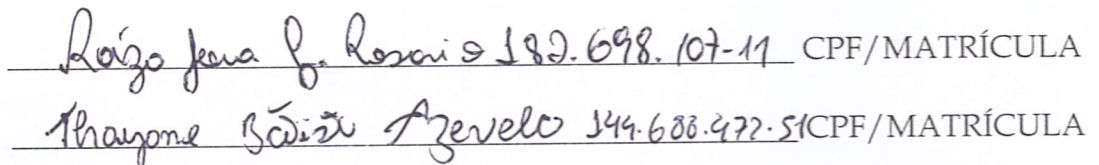 Raíza Jena P. Rosario 182.698.107-11 CPF/MATRÍCULA
Thayone Azevelo 144.688.477-51 CPF/MATRÍCULA